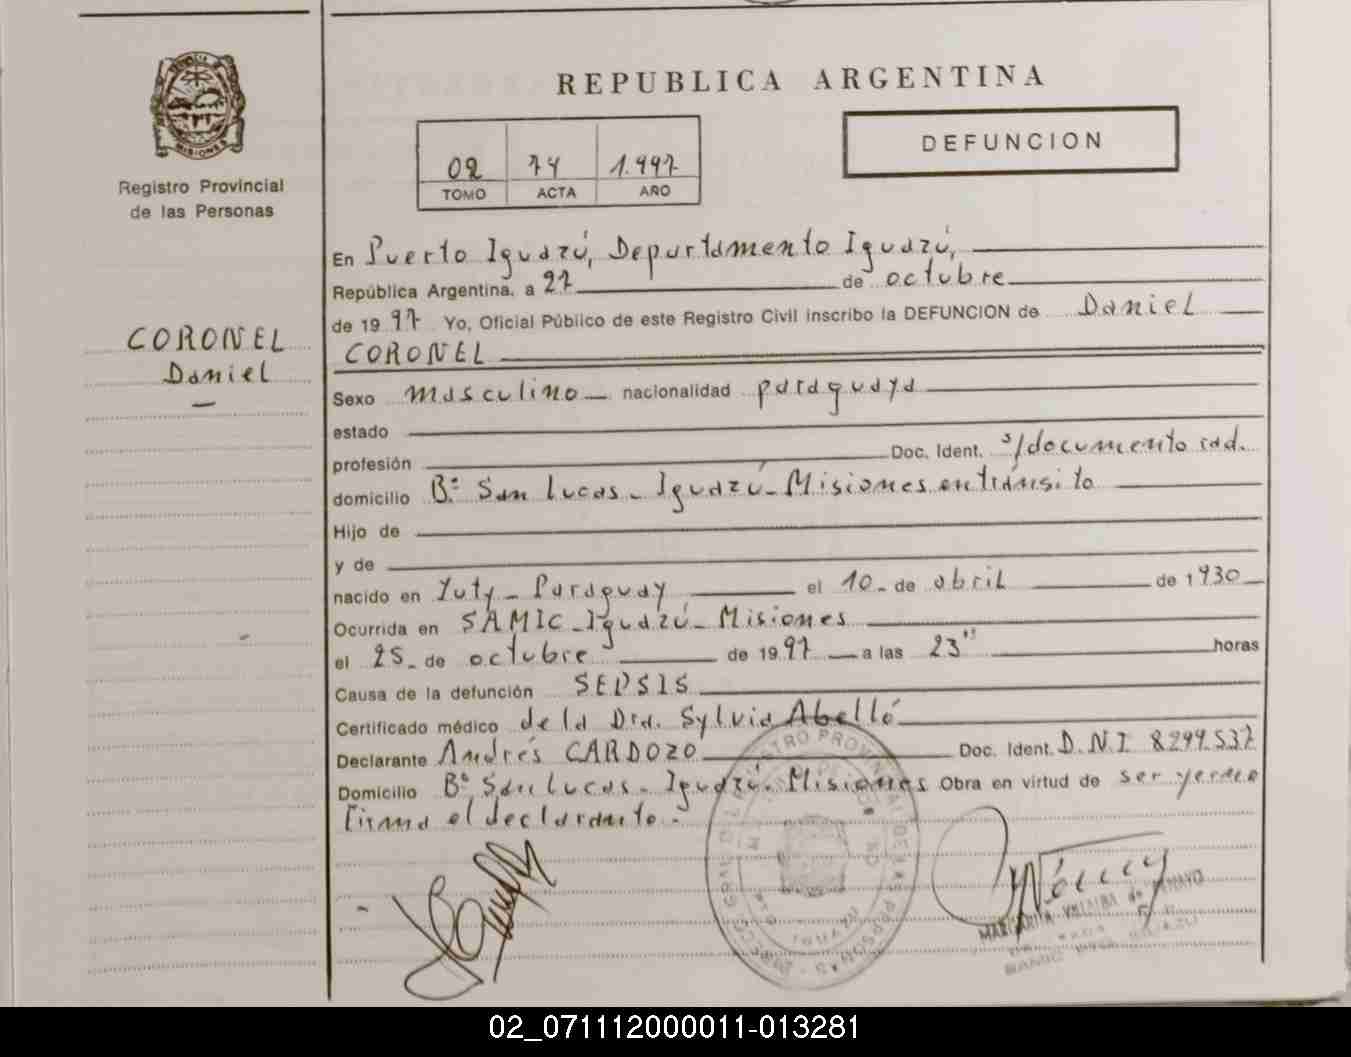 REPUBLICA ARGENTINA
DEFUNCION
02 74 1.997
TOMO ACTA AÑO
MISIONES
Registro Provincial
de las Personas
CORONEL
Daniel
En Puerto Iguazú, Departamento Iguazú,
República Argentina, a 27 de octubre
de 1997 Yo, Oficial Público de este Registro Civil inscribo la DEFUNCION de Daniel
CORONEL
Sexo masculino nacionalidad paraguaya
estado
profesión Doc. Ident. s/documento rad.
domicilio Bº San Lucas - Iguazú - Misiones en tránsito
Hijo de
y de
nacido en Yuty - Paraguay el 10 - de abril de 1930
Ocurrida en SAMIC - Iguazú - Misiones
el 25 - de octubre de 1997 a las 23" horas
Causa de la defunción SEPSIS
Certificado médico de la Dra. Sylvia Abelló
Declarante Andrés CARDOZO Doc. Ident. D.N.I 8299.537
Domicilio Bº San Lucas - Iguazú - Misiones Obra en virtud de ser yerno
Firma el declarante.-
02_071112000011-013281